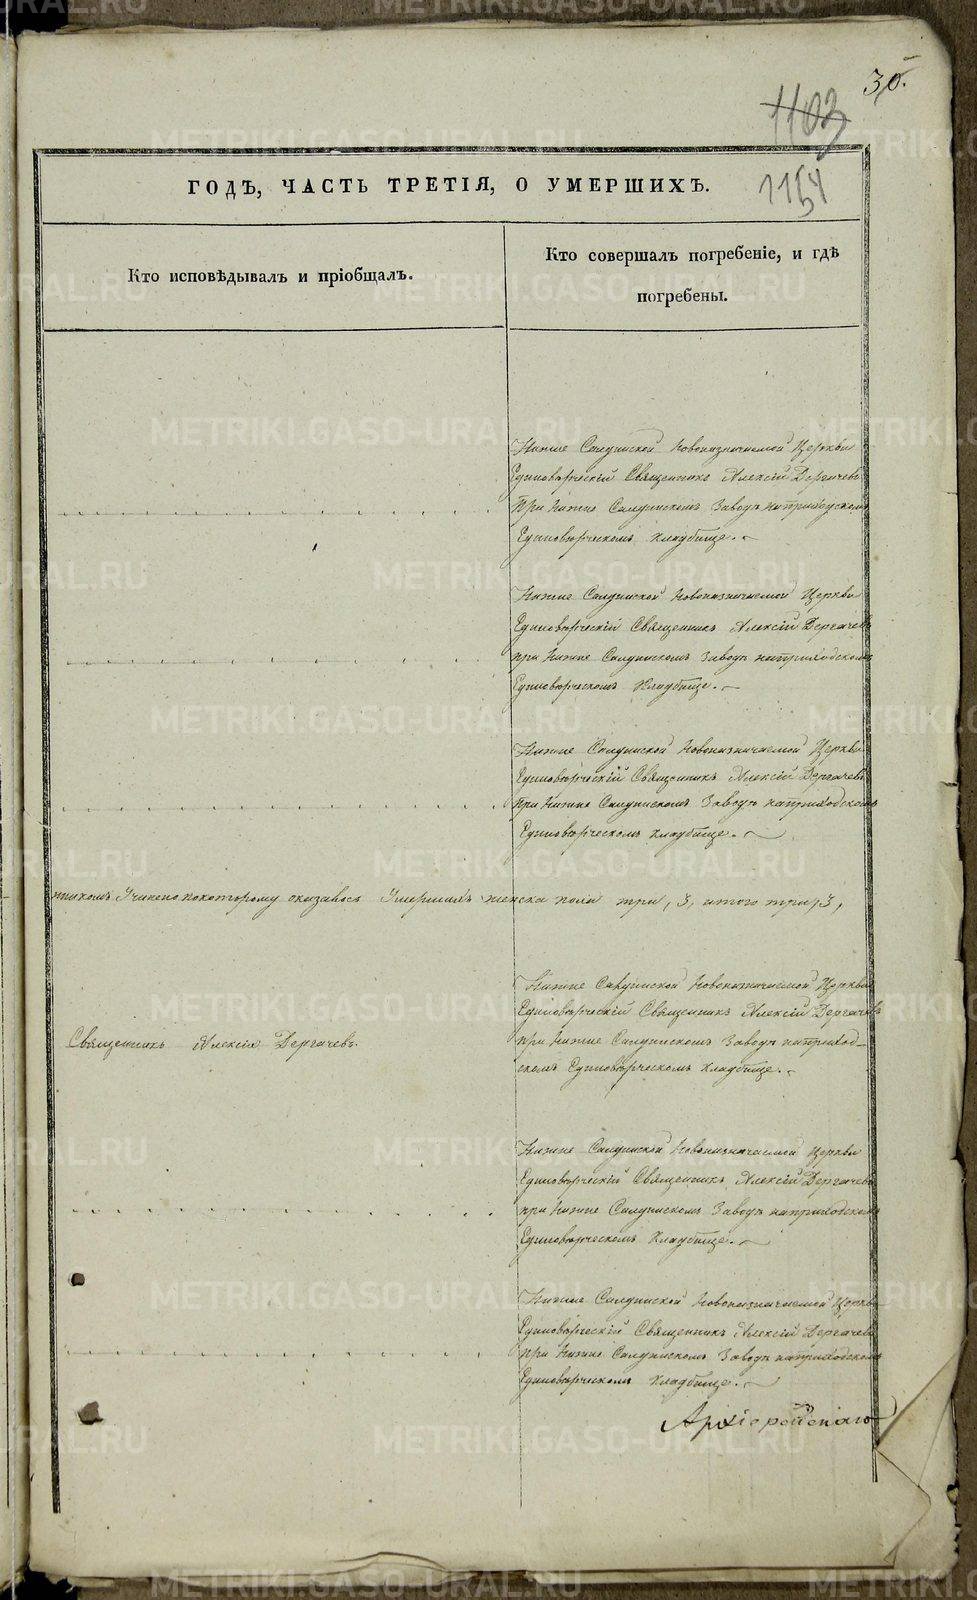 30.
1103
1154
ГОДЪ, ЧАСТЬ ТРЕТІЯ, О УМЕРШИХЪ.
Кто исповѣдывалъ и пріобщалъ.
Кто совершалъ погребеніе, и гдѣ
погребены.
Нижне Салдинской Новоназначаемой Церкви
Единовѣрческій Священникъ Алексій Дергачевъ
При Нижне Салдинскомъ Заводѣ наприходскомъ
Единовѣрческомъ кладбище.
Нижне Салдинской Новоназначаемой Церкви
Единовѣрческій Священникъ Алексій Дергачевъ
при Нижне Салдинскомъ Заводѣ наприходскомъ
Единовѣрческомъ Кладбище.
Нижне Салдинской Новоназначаемой Церкви
Единовѣрческій Священникъ Алексій Дергачевъ
при Нижне Салдинскомъ Заводѣ наприходскомъ
Единовѣрческомъ кладбище.
Учинено покоторому оказалось Умершихъ женска пола три, 3, итого три, 3,
Нижне Салдинской Новоназначаемой Церкви
Единовѣрческій Священникъ Алексій Дергачевъ
Священникъ Алексій Дергачевъ.
при Нижне Салдинскомъ Заводѣ наприход-
скомъ Единовѣрческомъ кладбище.
Нижне Салдинской Новоназначаемой Церкви
Единовѣрческій Священникъ Алексій Дергачевъ
при Нижне Салдинскомъ Заводѣ наприходскомъ
Единовѣрческомъ кладбище.
Нижне Салдинской Новоназначаемой Церкви
Единовѣрческій Священникъ Алексій Дергачевъ
при Нижне Салдинскомъ Заводѣ наприходскомъ
Единовѣрческомъ кладбище.
METRIKI.GASO-URAL.RU